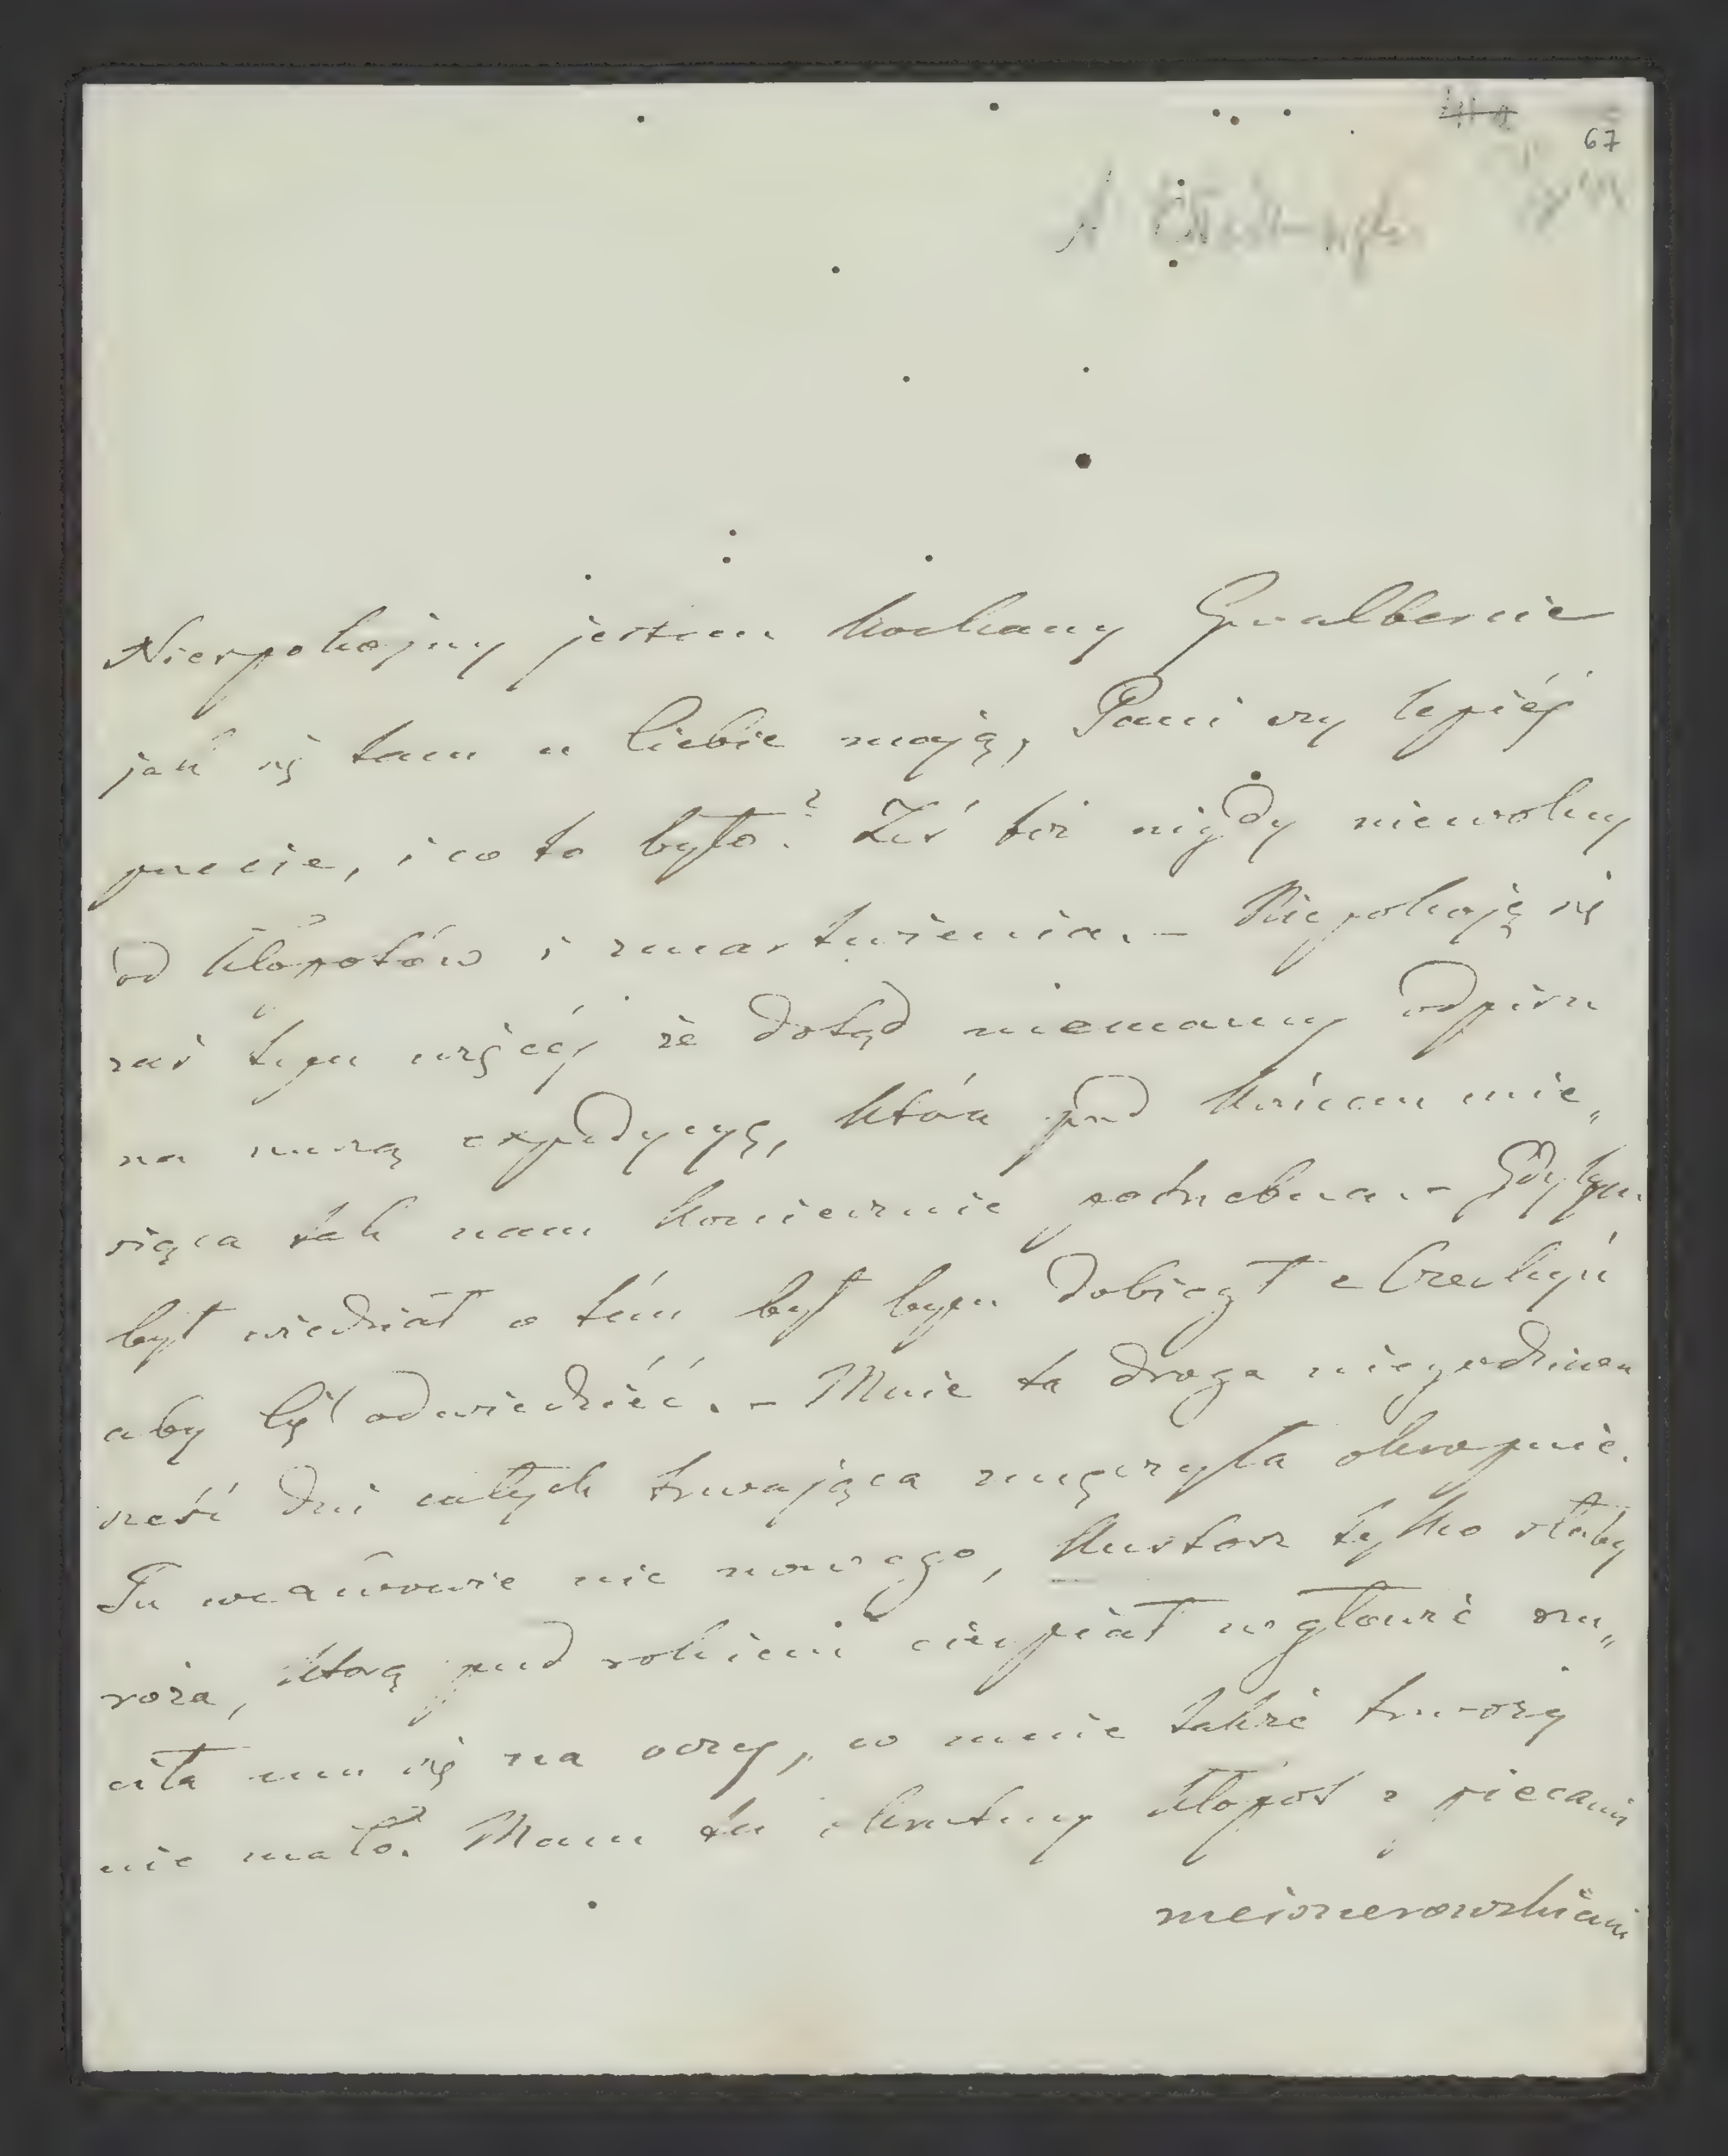 67
Niespokojny jestem kochany Gwalbercie
jak się tam u Ciebie mają, Pani czy lepiéj
przecie, i co to było? Żeś też nigdy niewolny
od kłopotów i zmartwienia. – Niepokoję się
zaś tym więcéj że dotąd niemamy odpisu
na naszą expedycyą, która przed końcem mie„
siąca tak nam koniecznie potrzebna. – Gdybym
był wiedział o tém był bym dobiegł z
aby Cię odwiedzić. – Mnie ta droga
sześć dni całych trwająca zmęczyła okropnie.
Tu we Lwowie nic nowego, Kustosz tylko słaby
róża, którą przed rokiem cierpiał w głowie rzu„
ciła mu się na oczy, co mnie także trwoży
nie mało. Mam tu okrutny kłopot z piecami
meisnerowskiemi